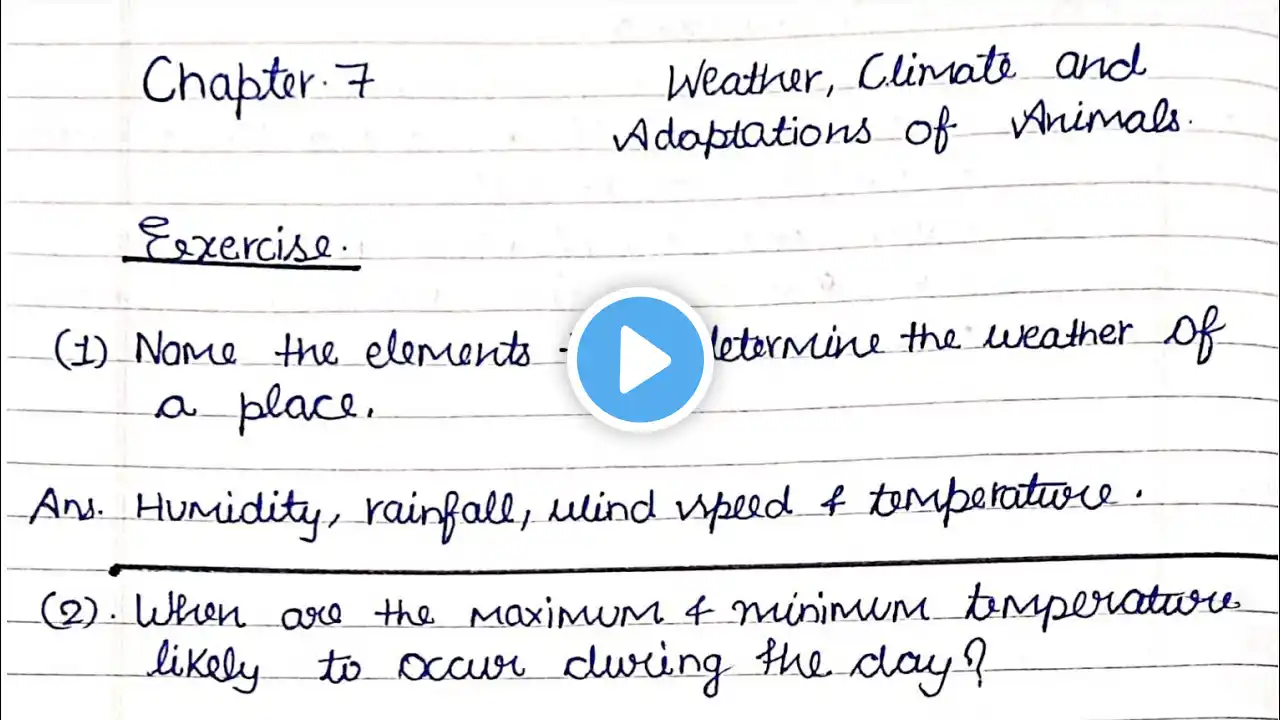 Chapter. 7
Weather, Climate and
Adaptations of Animals.
Exercise.
(1) Name the elements determine the weather of
a place.
Ans. Humidity, rainfall, wind speed & temperature.
(2). When are the maximum & minimum temperature
likely to occur during the day?